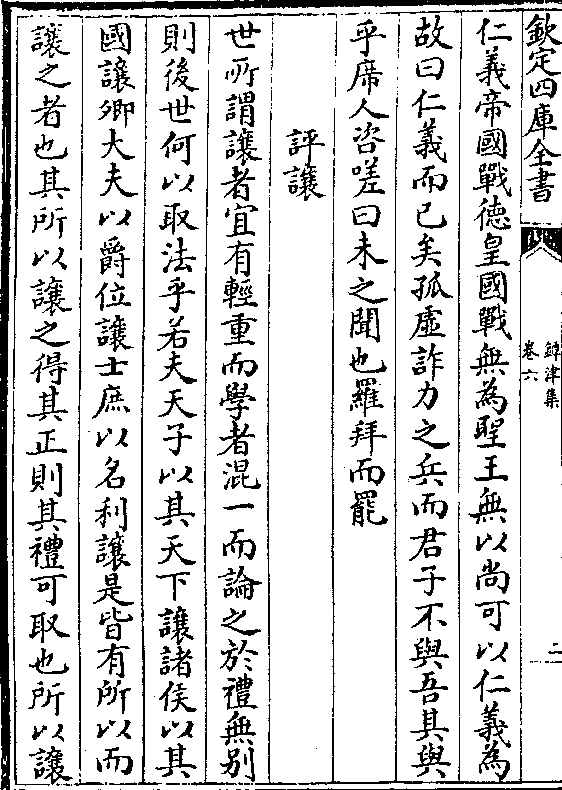 欽定四庫全書
鐔津集
卷六
二
仁義帝國戰德皇國戰無為聖王無以尚可以仁義為
故曰仁義而已矣孤虛詐力之兵而君子不與吾其與
乎席人咨嗟曰未之聞也羅拜而罷
評讓
世所謂讓者宜有輕重而學者混一而論之於禮無别
則後世何以取法乎若夫天子以其天下讓諸侯以其
國讓卿大夫以爵位讓士庶以名利讓是皆有所以而
讓之者也其所以讓之得其正則其禮可取也所以讓